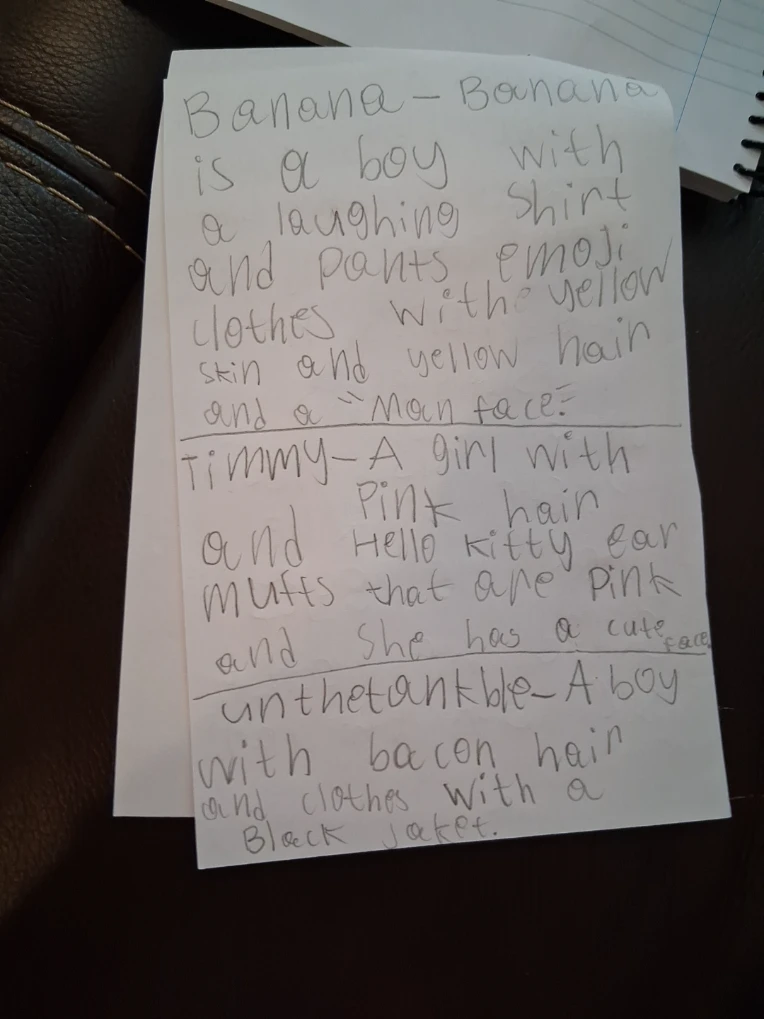 Banana - Banana
is a boy with
a laughing shirt
and pants emoji
clothes with yellow
skin and yellow hair
and a "Man face."
Timmy - A girl with
Pink hair
and Hello Kitty ear
muffs that are pink
and she has a cute face.
unthetankble - A boy
with bacon hair
and clothes with a
Black jaket.